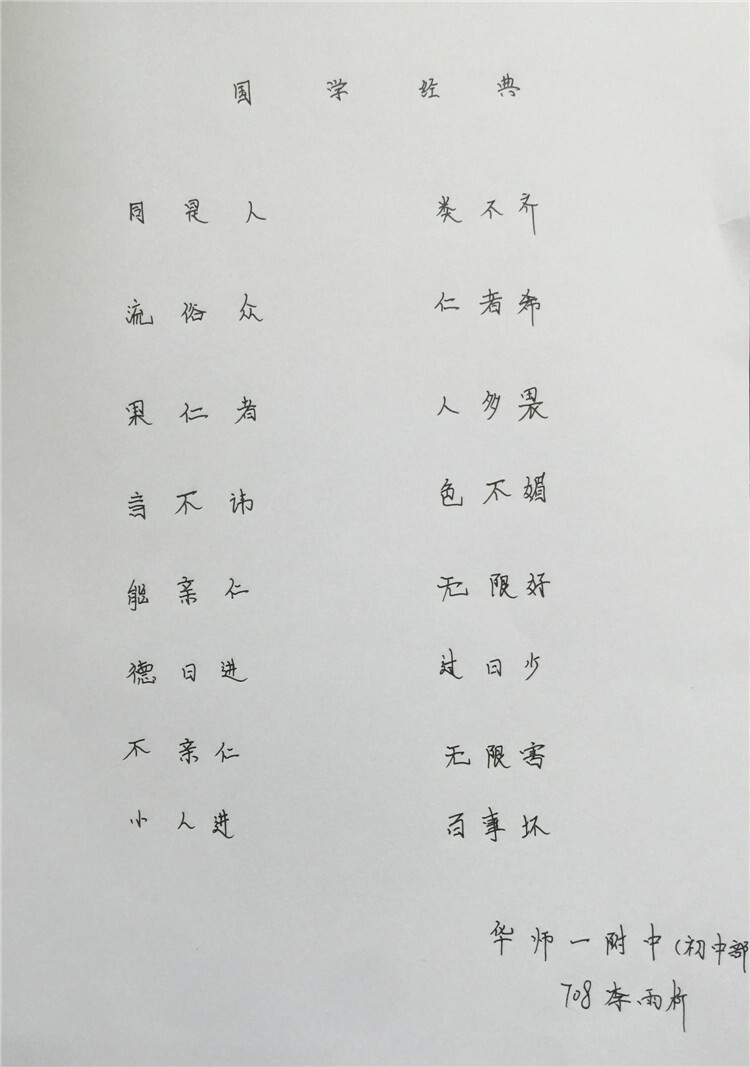 国学经典
同是人 类不齐
流俗众 仁者希
果仁者 人多畏
言不讳 色不媚
能亲仁 无限好
德日进 过日少
不亲仁 无限害
小人进 百事坏
华师一附中(初中部
708 李雨析